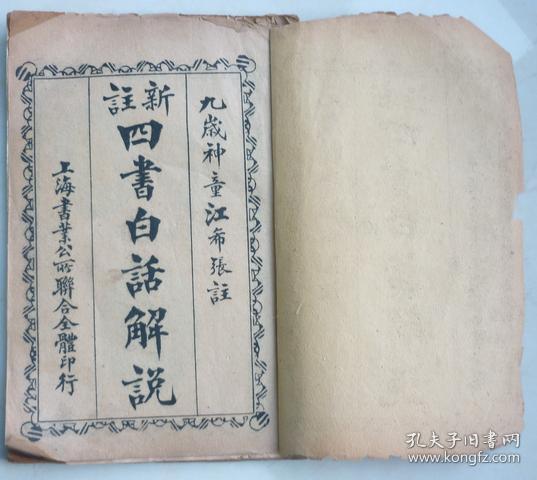 九歲神童江希張註
新註
四書白話解說
上海書業公所聯合全體印行
孔夫子旧书网
www.kongfz.com